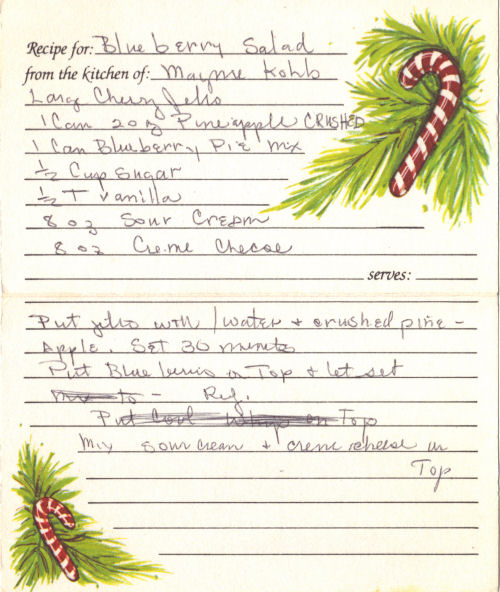 Recipe for: Blueberry Salad
from the kitchen of: Mayme Kohb
Larg Cherry Jello
1 Can 20 oz Pineapple CRUSHED
1 Can Blueberry Pie mix
½ Cup sugar
½ T vanilla
8 oz Sour Cream
8 oz Creme Cheese
serves:
Put jello with 1 water + crushed pine-
Apple. Set 30 minute
Put Blue berries on Top + let set
to - Ref.
Put Cool Whip on Top
Mix sour cream + creme cheese on
Top